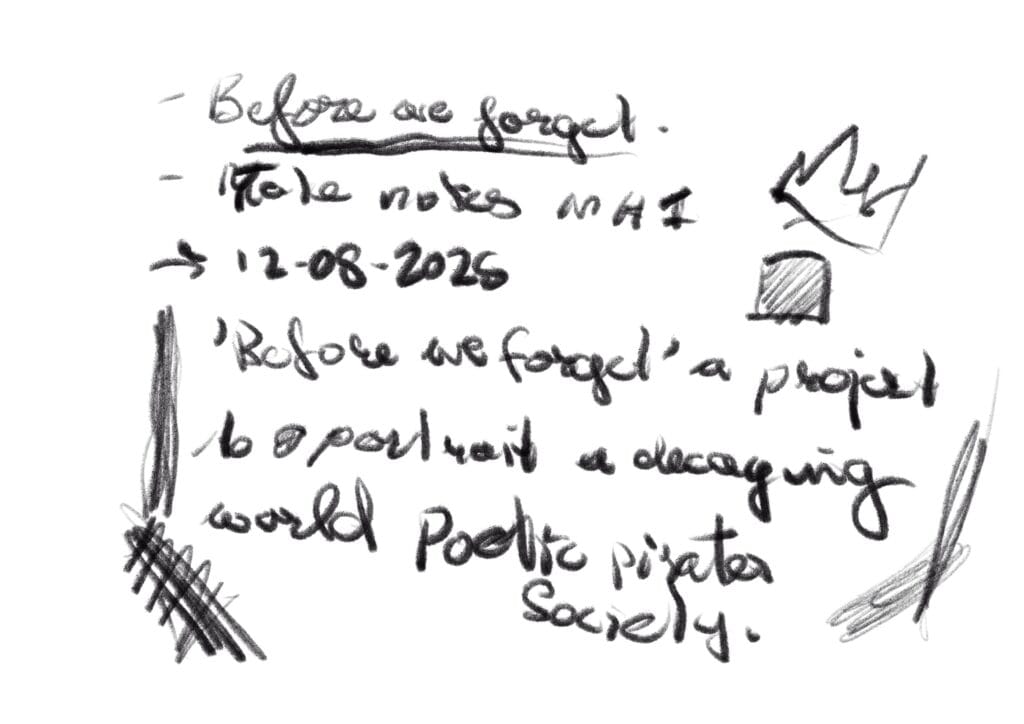 - Before we forget.
- Take notes MHI
→ 12-08-2025
'Before we forget' a project
to portrait a decaying
world Poetic pirates
Society.